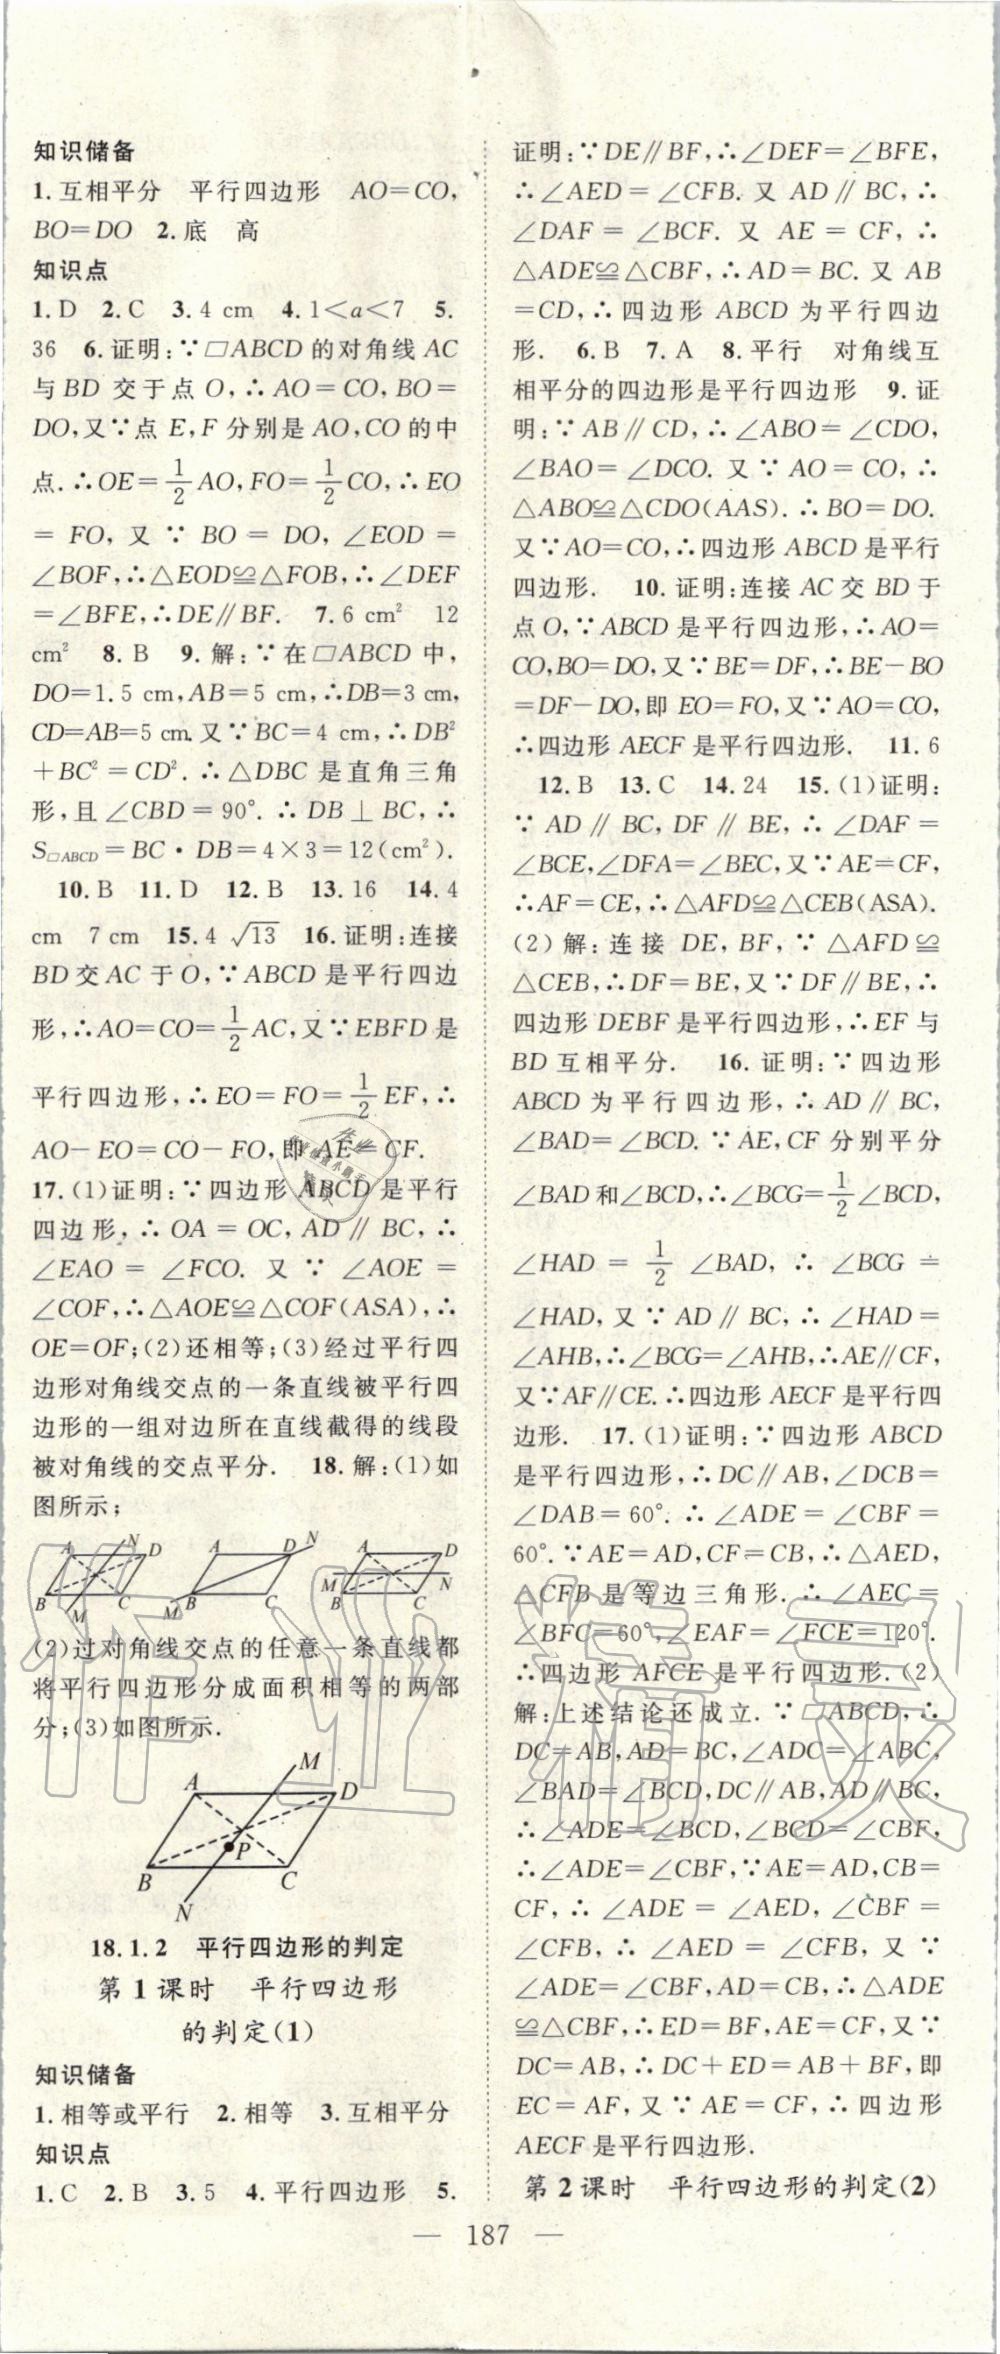 知识储备
1.互相平分　平行四边形　AO=CO,
BO=DO　2.底　高
知识点
1.D　2.C　3.4 cm　4.1<a<7　5.
36　6.证明:∵▱ABCD的对角线AC
与BD交于点O,∴AO=CO,BO=
DO,又∵点E,F分别是AO,CO的中
点.∴OE=1/2AO,FO=1/2CO,∴EO
=FO,又∵BO=DO,∠EOD=
∠BOF,∴△EOD≌△FOB,∴∠DEF
=∠BFE,∴DE∥BF.　7.6 cm²　12
cm²　8.B　9.解:∵在▱ABCD中,
DO=1.5 cm,AB=5 cm,∴DB=3 cm,
CD=AB=5 cm.又∵BC=4 cm,∴DB²
+BC²=CD².∴△DBC是直角三角
形,且∠CBD=90°.∴DB⊥BC,∴
S▱ABCD=BC·DB=4×3=12(cm²).
10.B　11.D　12.B　13.16　14.4
cm　7 cm　15.4　√13　16.证明:连接
BD交AC于O,∵ABCD是平行四边
形,∴AO=CO=1/2AC,又∵EBFD是
平行四边形,∴EO=FO=1/2EF,∴
AO-EO=CO-FO,即AE=CF.
17.(1)证明:∵四边形ABCD是平行
四边形,∴OA=OC,AD∥BC,∴
∠EAO=∠FCO.又∵∠AOE=
∠COF,∴△AOE≌△COF(ASA),∴
OE=OF;(2)还相等;(3)经过平行四
边形对角线交点的一条直线被平行四
边形的一组对边所在直线截得的线段
被对角线的交点平分.　18.解:(1)如
图所示;
A N D B M C
A D N M B C
A D M N B C
(2)过对角线交点的任意一条直线都
将平行四边形分成面积相等的两部
分;(3)如图所示.
M
A D
P
B C
N
18.1.2　平行四边形的判定
第1课时　平行四边形
的判定(1)
知识储备
1.相等或平行　2.相等　3.互相平分
知识点
1.C　2.B　3.5　4.平行四边形　5.
证明:∵DE∥BF,∴∠DEF=∠BFE,
∴∠AED=∠CFB.又AD∥BC,∴
∠DAF=∠BCF.又AE=CF,∴
△ADE≌△CBF,∴AD=BC.又AB
=CD,∴四边形ABCD为平行四边
形.　6.B　7.A　8.平行　对角线互
相平分的四边形是平行四边形　9.证
明:∵AB∥CD,∴∠ABO=∠CDO,
∠BAO=∠DCO.又∵AO=CO,∴
△ABO≌△CDO(AAS).∴BO=DO.
又∵AO=CO,∴四边形ABCD是平行
四边形.　10.证明:连接AC交BD于
点O,∵ABCD是平行四边形,∴AO=
CO,BO=DO,又∵BE=DF,∴BE-BO
=DF-DO,即EO=FO,又∵AO=CO,
∴四边形AECF是平行四边形.　11.6
12.B　13.C　14.24　15.(1)证明:
∵AD∥BC,DF∥BE,∴∠DAF=
∠BCE,∠DFA=∠BEC,又∵AE=CF,
∴AF=CE,∴△AFD≌△CEB(ASA).
(2)解:连接DE,BF,∵△AFD≌
△CEB,∴DF=BE,又∵DF∥BE,∴
四边形DEBF是平行四边形,∴EF与
BD互相平分.　16.证明:∵四边形
ABCD为平行四边形,∴AD∥BC,
∠BAD=∠BCD.∵AE,CF分别平分
∠BAD和∠BCD,∴∠BCG=1/2∠BCD,
∠HAD=1/2∠BAD,∴∠BCG=
∠HAD,又∵AD∥BC,∴∠HAD=
∠AHB,∴∠BCG=∠AHB,∴AE∥CF,
又∵AF∥CE.∴四边形AECF是平行四
边形.　17.(1)证明:∵四边形ABCD
是平行四边形,∴DC∥AB,∠DCB=
∠DAB=60°.∴∠ADE=∠CBF=
60°.∵AE=AD,CF=CB,∴△AED,
△CFB是等边三角形.∴∠AEC=
∠BFC=60°,∠EAF=∠FCE=120°.
∴四边形AFCE是平行四边形.(2)
解:上述结论还成立.∵▱ABCD,∴
DC=AB,AD=BC,∠ADC=∠ABC,
∠BAD=∠BCD,DC∥AB,AD∥BC,
∴∠ADE=∠BCD,∠BCD=∠CBF,
∴∠ADE=∠CBF,∵AE=AD,CB=
CF,∴∠ADE=∠AED,∠CBF=
∠CFB,∴∠AED=∠CFB,又∵
∠ADE=∠CBF,AD=CB,∴△ADE
≌△CBF,∴ED=BF,AE=CF,又∵
DC=AB,∴DC+ED=AB+BF,即
EC=AF,又∵AE=CF,∴四边形
AECF是平行四边形.
第2课时　平行四边形的判定(2)
— 187 —